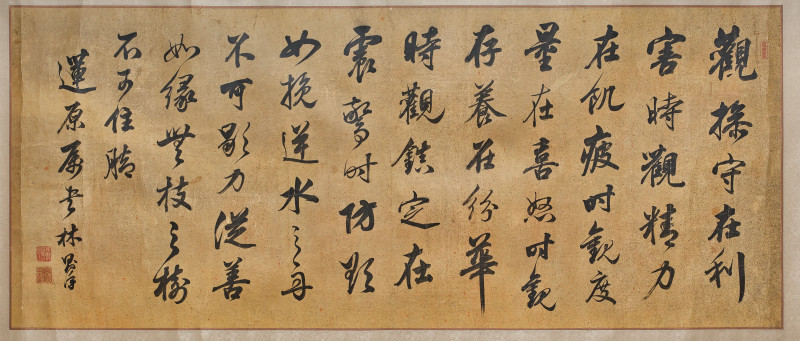 觀操守在利
害時觀精力
在飢疲時觀度
量在喜怒時觀
存養在紛華
時觀鎮定在
震驚時防欺
如挽逆水之舟
不可歇力從善
如緣無枝之樹
不可住腳
蓮原屬書林則徐